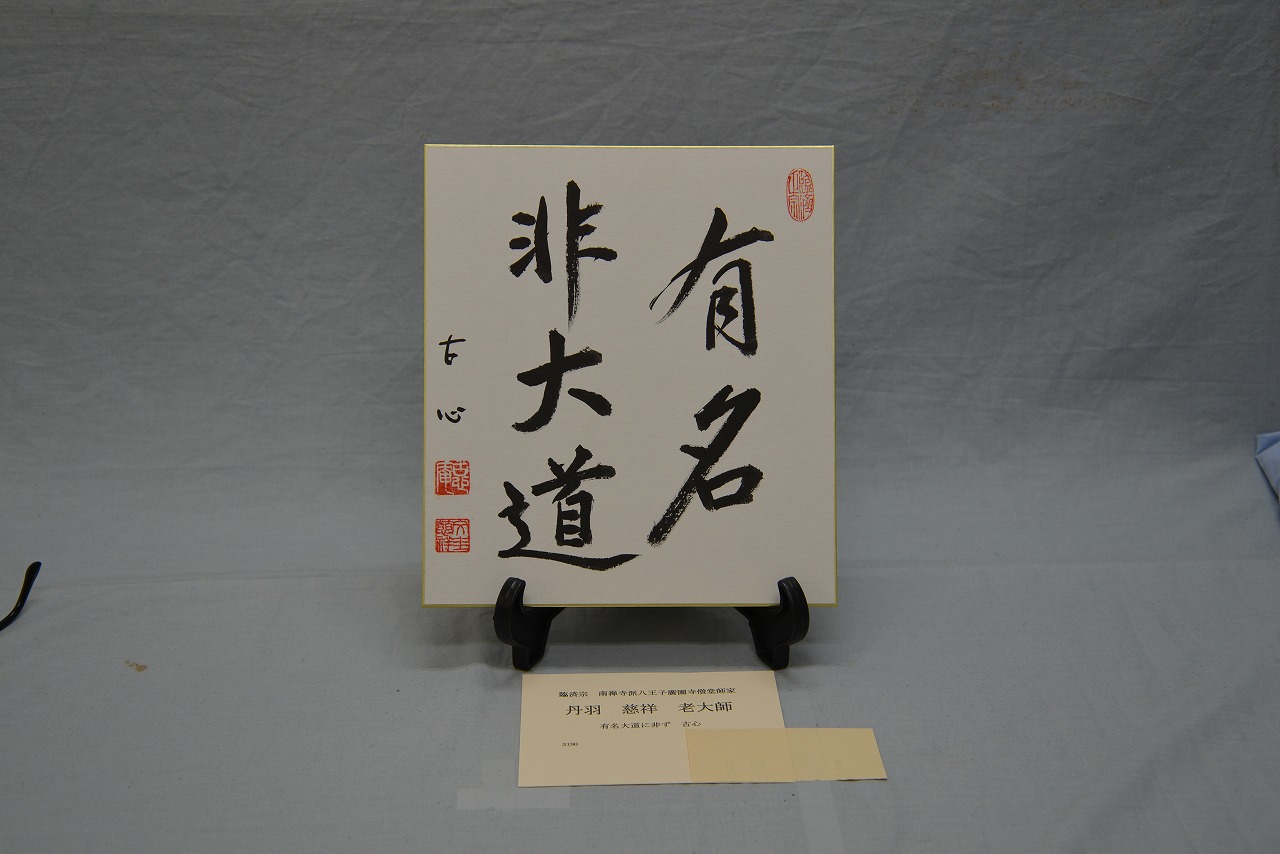 有名
非大道
古心
臨済宗 南禅寺派八王子廣園寺僧堂師家
丹羽 慈祥 老大師
有名大道に非ず 古心
3190